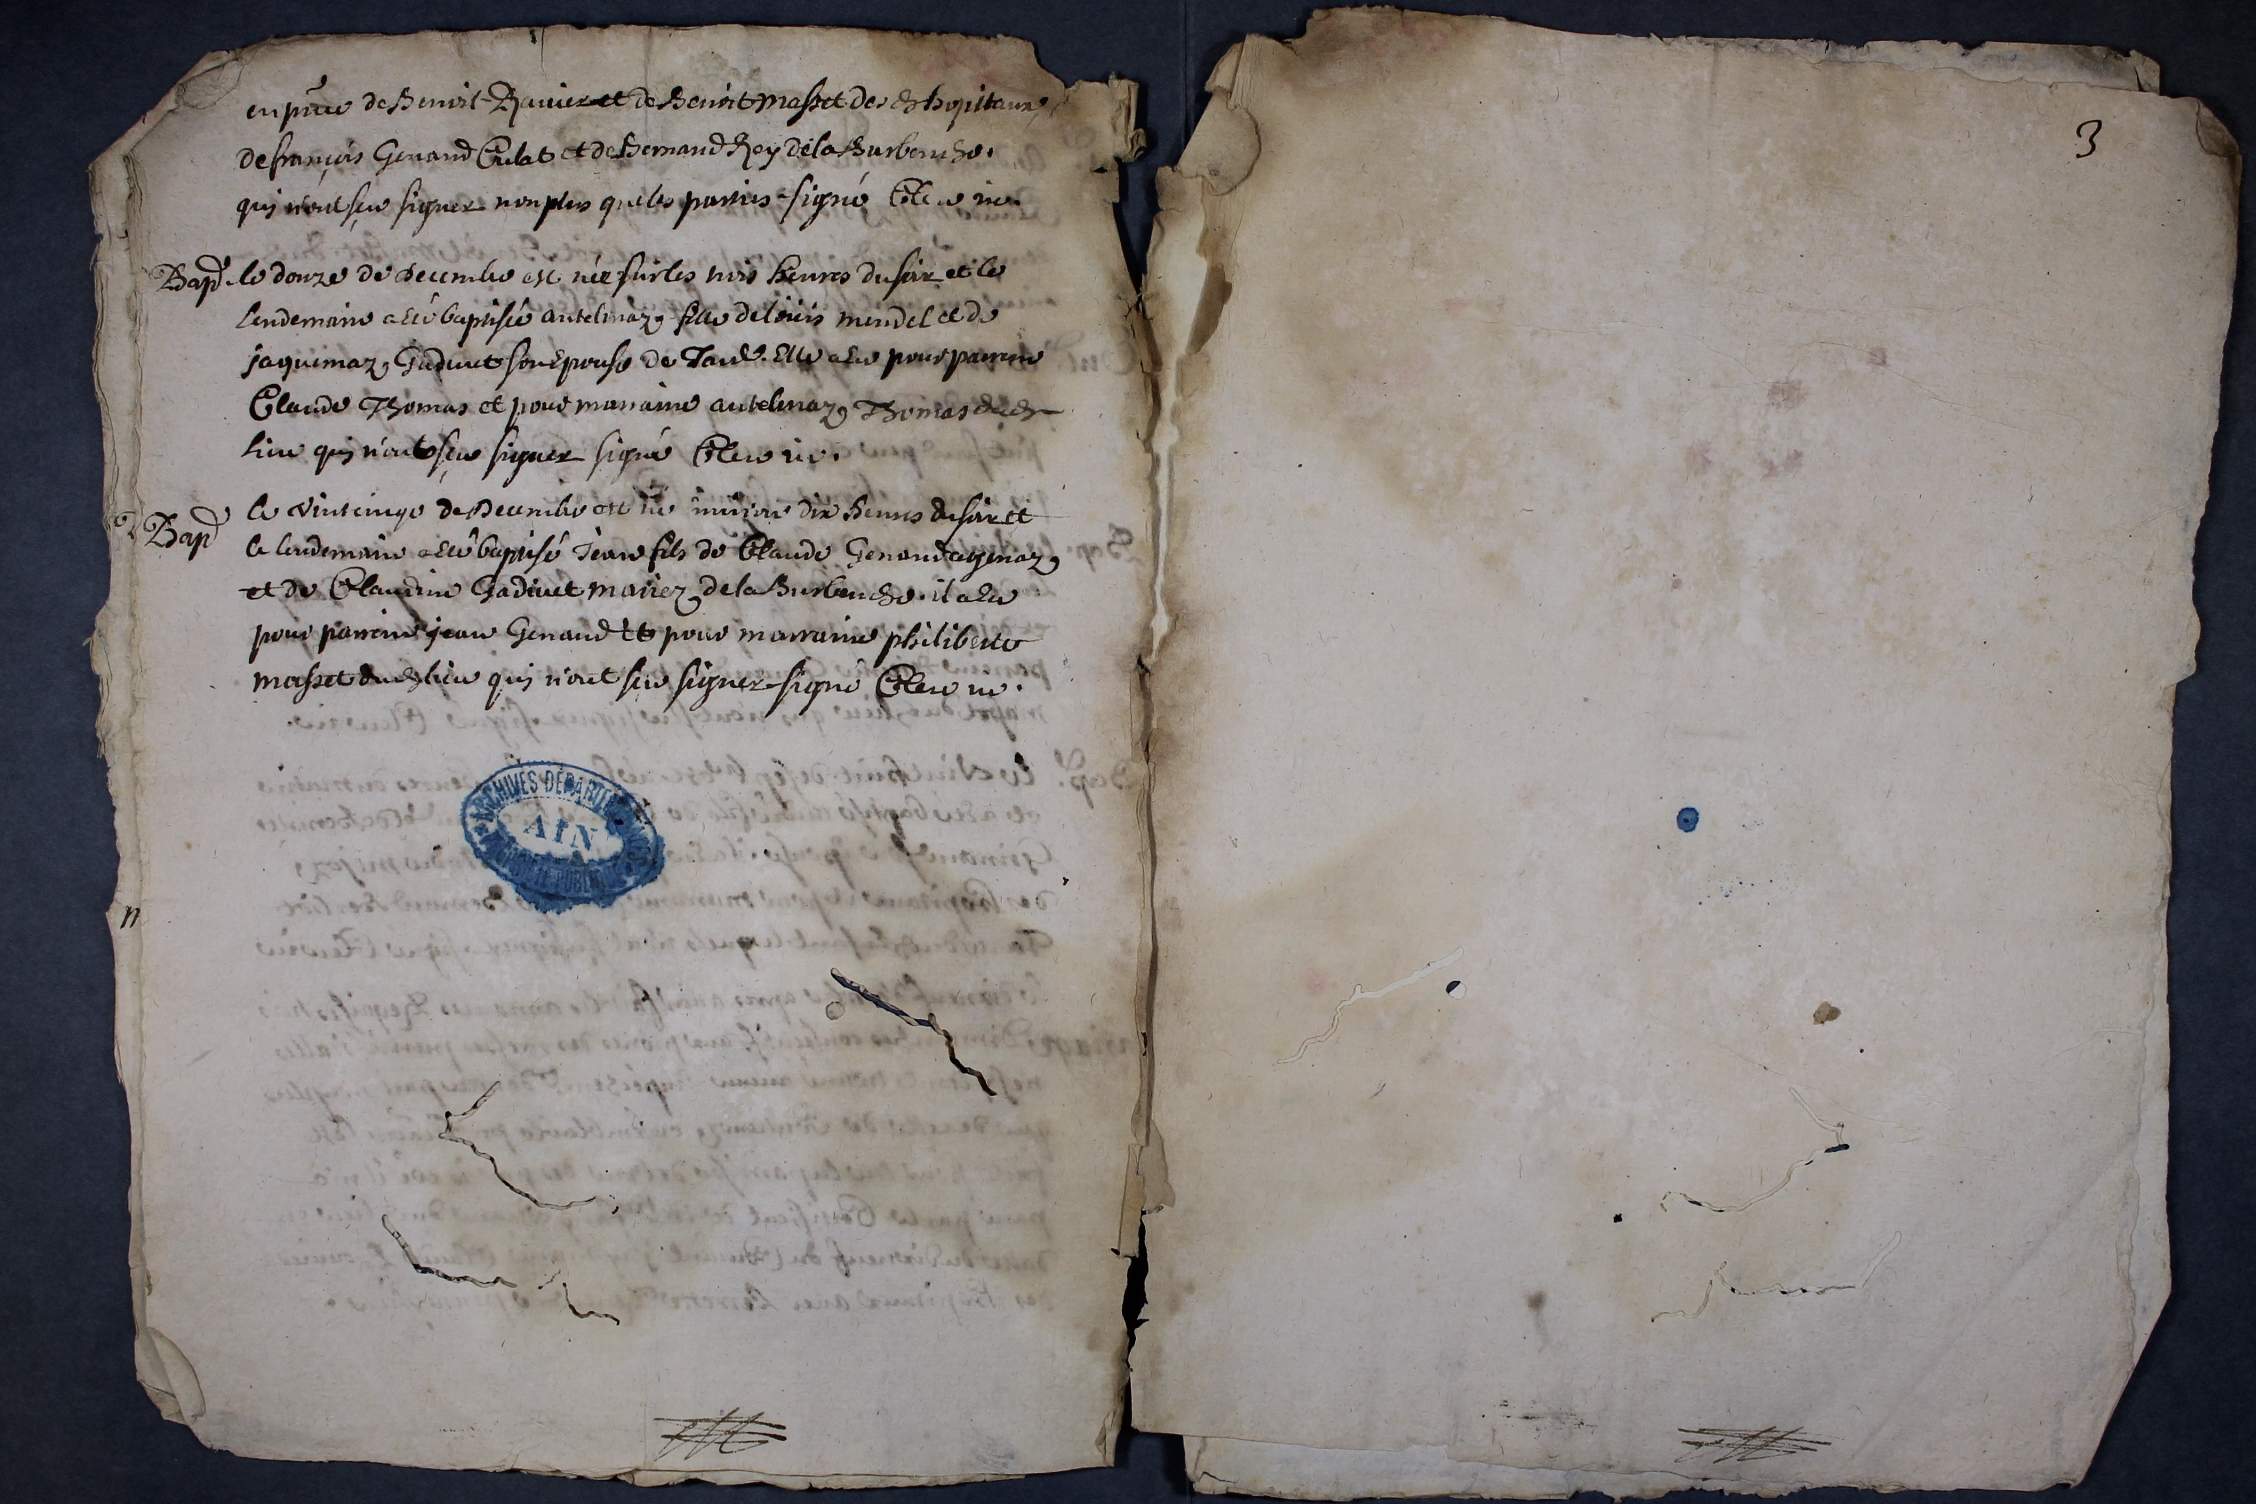 en pnce de Benoit Ravier et de Benoit masset des dts hopitaux
de françois Genand Culat et de Bernand Rey de la Burbenche.
qui n'ont sçu signer non plus que les parties signé
Bapt. le douze de decembre est née sur les trois heures du soir et le
lendemain a été baptisée antelmaz fille de loüis mendel et de
jaquemaz Gudivet son épouse de elle a eu pour parrein
Claude Thomas et pour marraine antelmaz Thomas dudt
lieu qui n'ont sçu signer signé
Bapt le vintcinqe de Decembre est né environ dix heures du soir et
le lendemain a été baptisé jean fils de Claude Genand
et de Claudine Gadivet mariez de la Burbenche. il a eu
pour parrein jean Genand et pour marraine philiberte
masset dudt lieu qui n'ont sçu signer signé
ARCHIVES DÉPARTEMENTALES
AIN
n
3